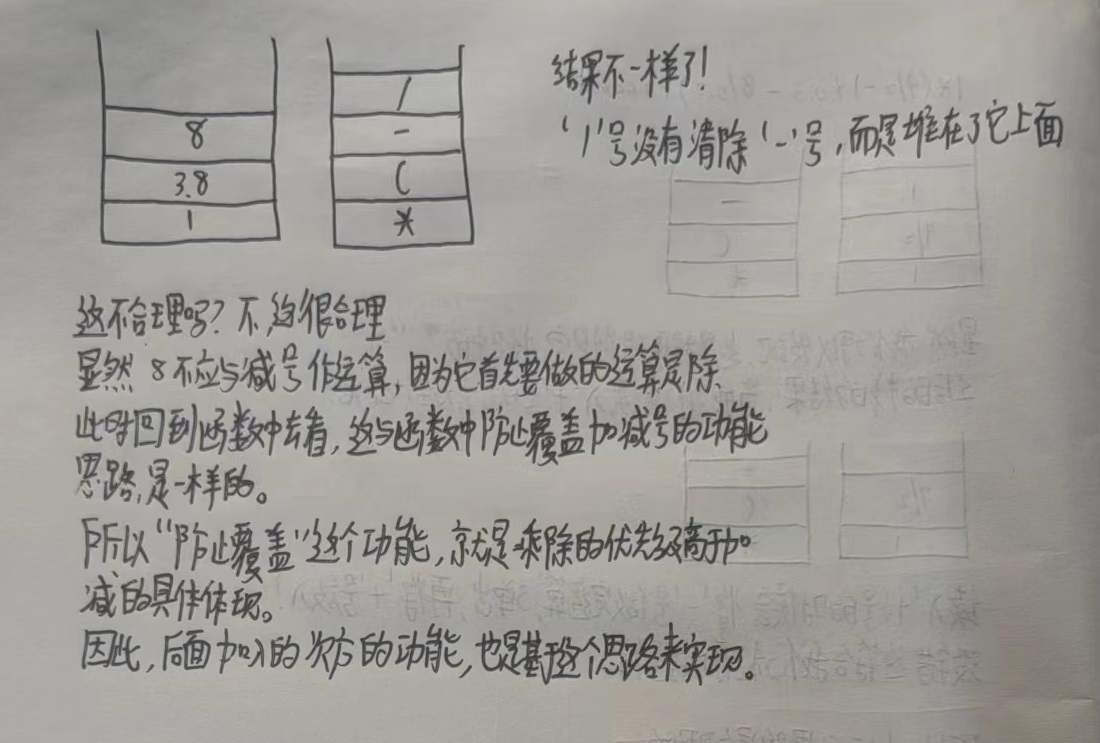 8
3.8
1
/
-
(
*
结果不一样了!
'/'号没有清除'-'号,而是堆在了它上面
这不合理吗?不,这很合理
显然 8不应与减号作运算,因为它首先要做的运算是除
此时回到函数中去看,这与函数中防止覆盖加减号的功能
思路,是一样的。
所以“防止覆盖”这个功能,就是乘除的优先级高于加
减的具体体现。
因此,后面加入的次方的功能,也是基于这个思路来实现。